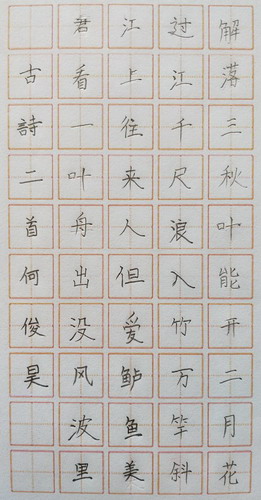 解落三秋叶能开二月花
过江千尺浪入竹万竿斜
江上往来人但爱鲈鱼美
君看一叶舟出没风波里
古詩二首何俊昊